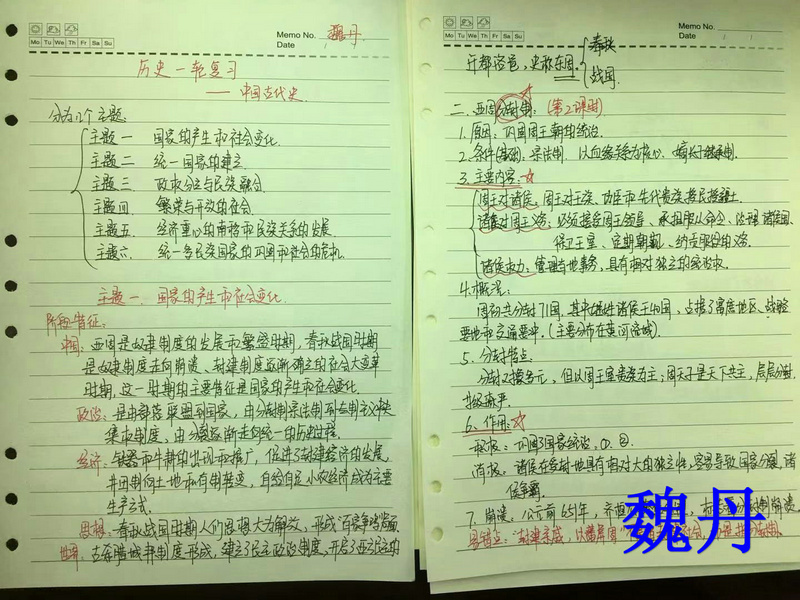 Memo No.
魏丹
Mo Tu We Th Fr Sa Su
Date / /
历史一轮复习
——中国古代史
分为几个主题:
主题一 国家的产生和社会变化
主题二 统一国家的建立
主题三 政权分立与民族融合
主题四 繁荣与开放的社会
主题五 经济重心的南移和民族关系的发展
主题六 统一多民族国家的巩固和社会的危机
主题一. 国家的产生和社会变化
阶段特征:
中国: 西周是奴隶制度的发展和繁盛时期, 春秋战国时期
是奴隶制度走向崩溃、封建制度逐渐确立的社会大变革
时期, 这一时期的主要特征是国家的产生和社会变化.
政治: 是由部落联盟到国家, 由分封制宗法制到专制主义中央
集权制度, 由分裂逐渐走向统一的历史过程.
经济: 铁器和牛耕的出现和推广, 促进了封建经济的发展.
井田制向土地私有制转变, 自给自足小农经济成为主要
生产方式.
思想: 春秋战国时期人们思想大为解放, 形成"百家争鸣"局面
世界: 古希腊城邦制度形成, 建立了民主政治制度, 开启了西方民主的
Memo No.
Mo Tu We Th Fr Sa Su
Date / /
迁都洛邑, 史称东周.
春秋
战国.
二. 西周分封制: (第2课时)
1. 原因: 巩固周王朝的统治.
2. 条件(基础): 宗法制. 以血缘关系为核心, 嫡长子继承制.
3. 主要内容:
周王对诸侯: 周王对王族、功臣和先代贵族授民授疆土.
诸侯对周王义务: 必须接受周王领导、承担服从命令、
保卫王室、定期朝觐、纳贡服役的义务.
诸侯权力: 管理当地事务, 具有相对独立的统治权.
4. 概况:
周初共分封71国, 其中姬姓诸侯王40国, 占据了富庶地区、战略
要地和交通要冲. (主要分布在黄河流域)
5. 分封特点:
分封对象多元, 但以周王室贵族为主; 周天子是天下共主, 层层分封
等级森严.
6. 作用:
积极: 巩固了国家统治, ① ②
消极: 诸侯在封地具有相对大的独立性, 容易导致国家分裂, 诸
侯争霸.
7. 崩溃: 公元前651年, 齐
特点: "封建亲戚, 以藩屏周"
魏丹